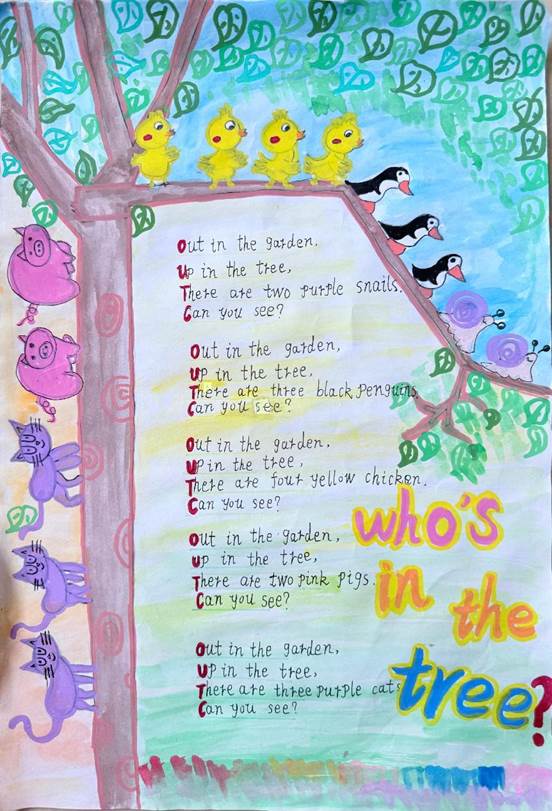 Out in the garden,
Up in the tree,
There are two purple snails.
Can you see?
Out in the garden,
Up in the tree,
There are three black penguins.
Can you see?
Out in the garden,
Up in the tree,
There are four yellow chicken.
Can you see?
Out in the garden,
Up in the tree,
There are two pink pigs.
Can you see?
Out in the garden,
Up in the tree,
There are three purple cats
Can you see?
who's
in the
tree?